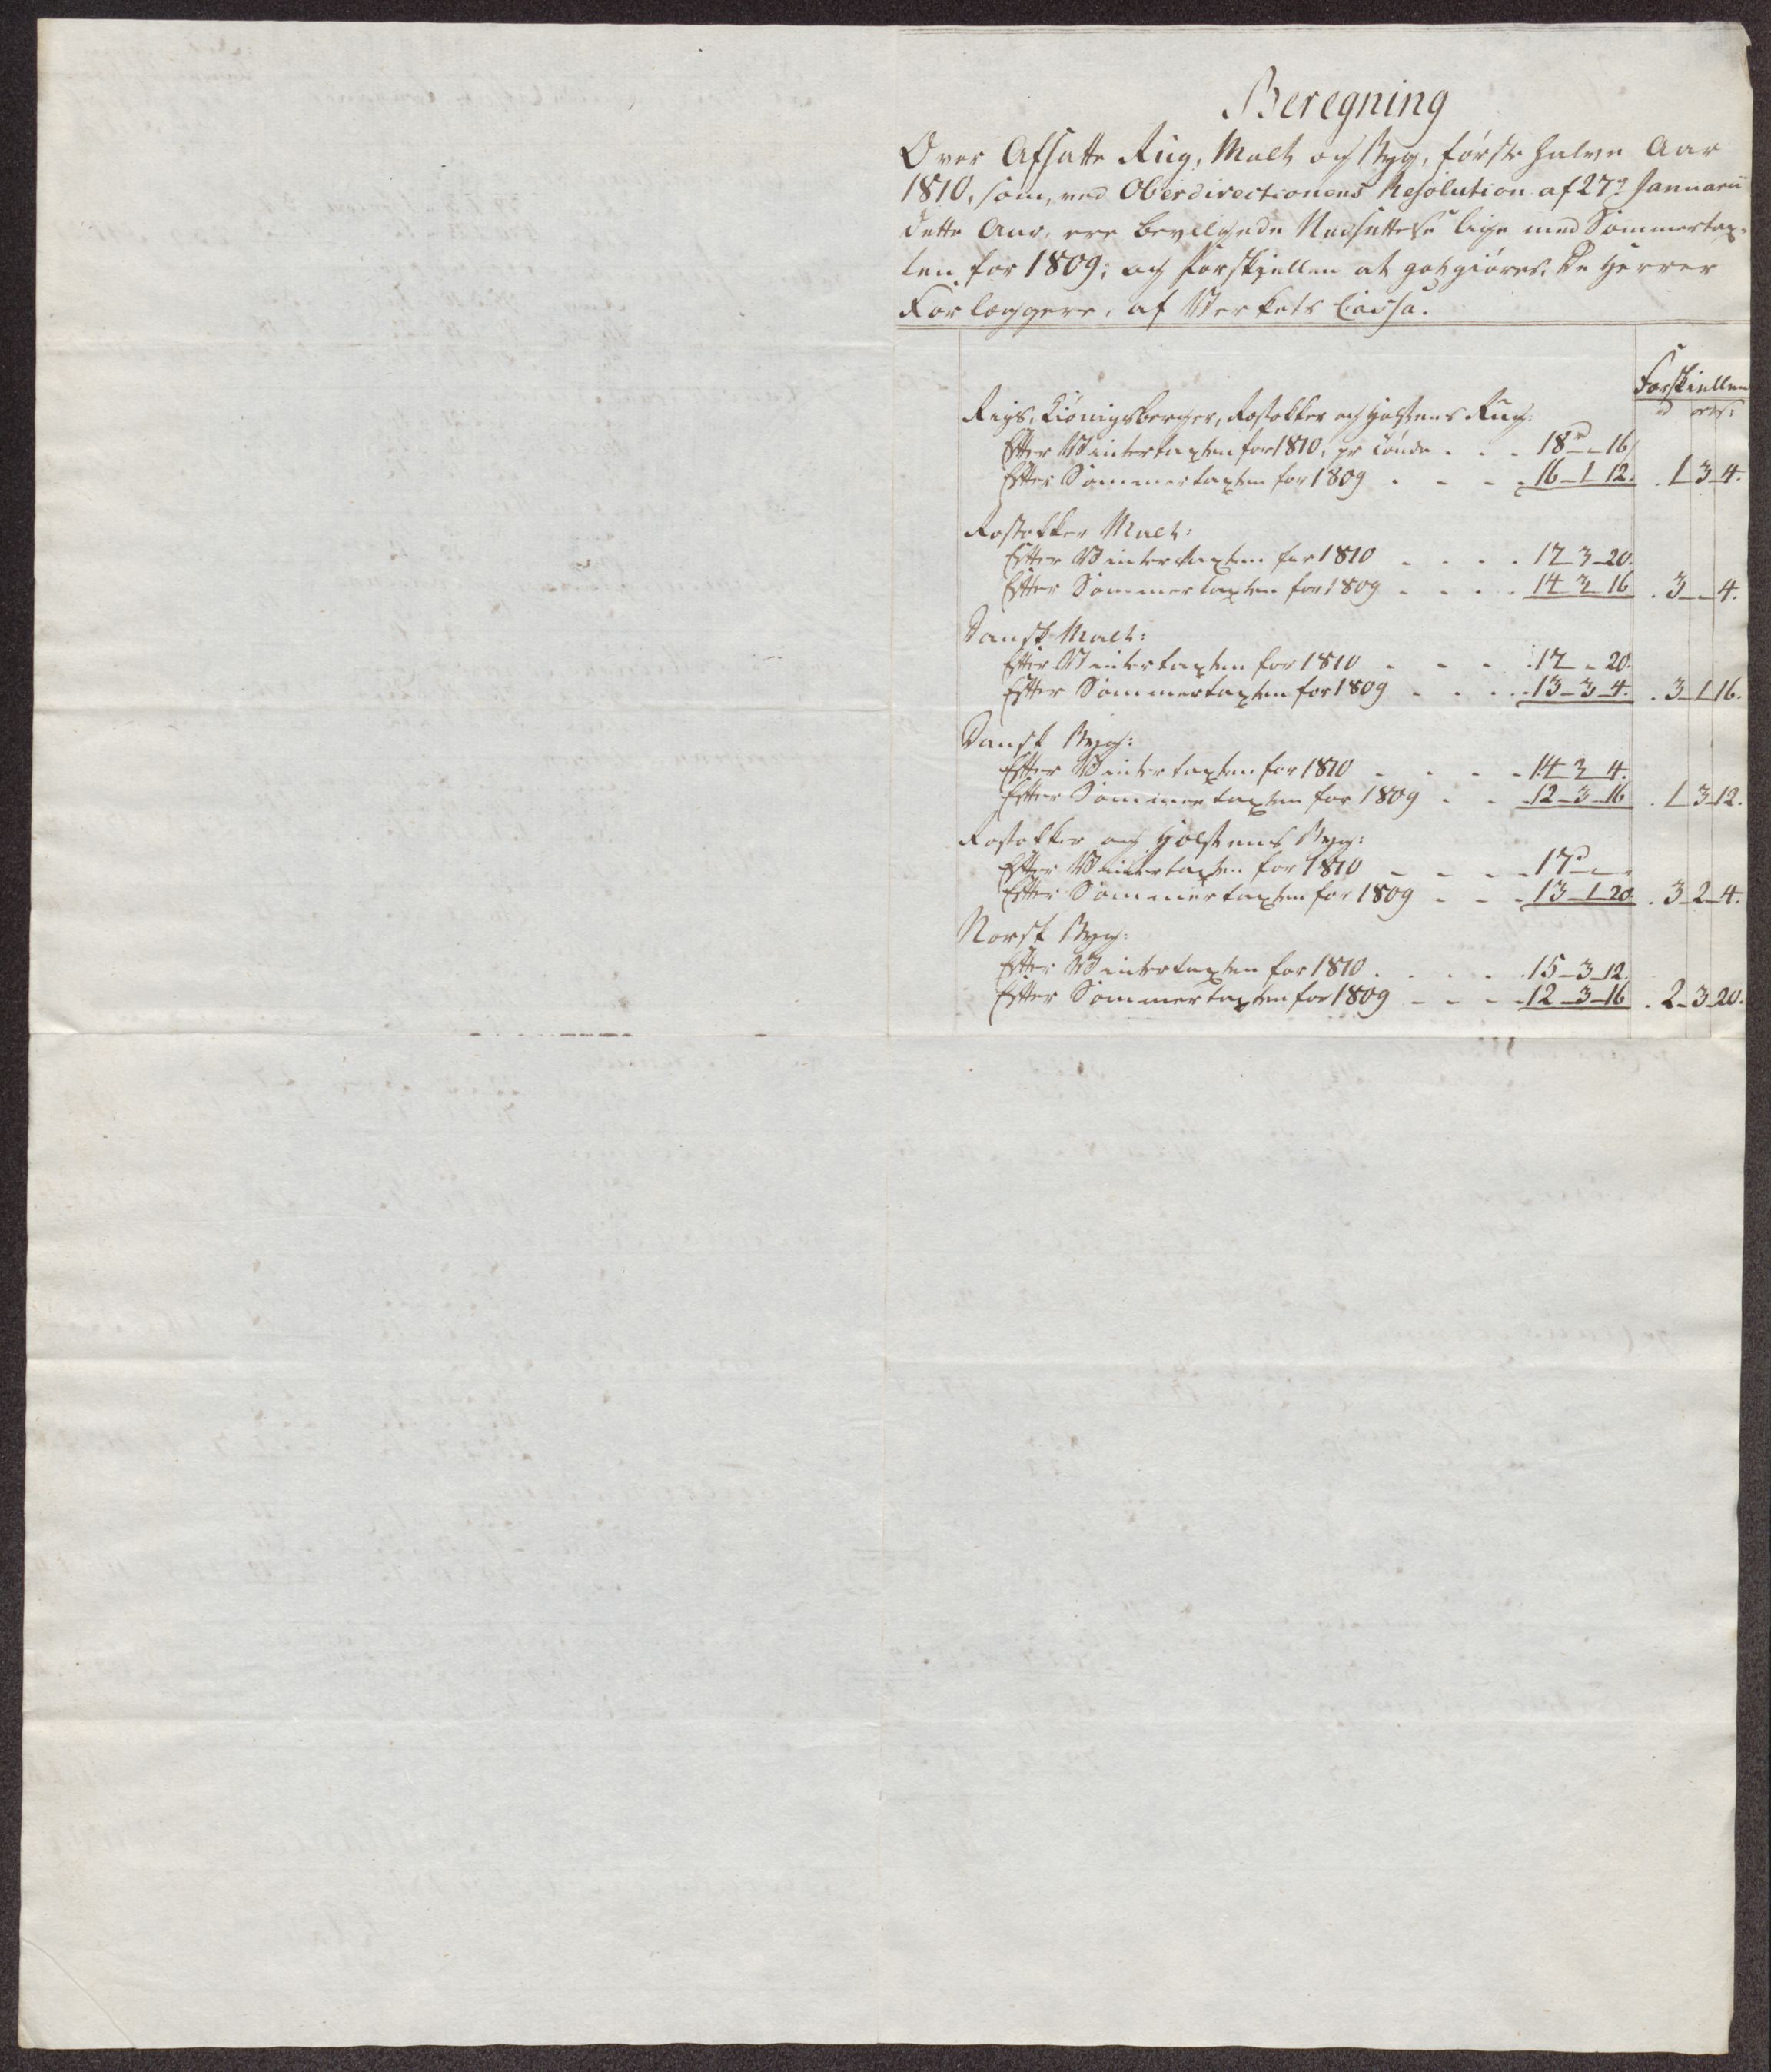 Beregning
Over Afsatte Rug, Malt og Byg, første halve Aar
1810, som, ved Oberdirectionens Resolution af 27de Januarii
dette Aar, ere bevilgede Nedsættelse lige med Sommertax-
ten for 1809; og Forskjellen at godgiøres De Herrer
Forlæggere, af Verkets Cassa.
Forskiellen
rd ort s:
Rigs, Kiönigsberger, Rostokker og Holstens Rug:
Efter Vintertaxten for 1810, pr Tönde . . . 18rd - 16
Efter Sommertaxten for 1809 . . . . 16 - 1 12. . 1 3 4.
Rostokker Malt:
Efter Vintertaxten for 1810 . . . . 17 3 20.
Efter Sommertaxten for 1809 . . . . 14 3 16 . 3 - 4.
Dansk Malt:
Efter Vintertaxten for 1810 . . . . 17 - 20.
Efter Sommertaxten for 1809 . . . . 13 - 3 4. . 3 1 16.
Dansk Byg:
Efter Vintertaxten for 1810 . . . . 14 3 4.
Efter Sommertaxten for 1809 . . . 12 - 3 16 . 1 3 12.
Rostokker og Holstens Byg:
Efter Vintertaxten for 1810 . . . . 17rd - -
Efter Sommertaxten for 1809 . . . 13 - 1 20. . 3 2 4.
Norsk Byg:
Efter Vintertaxten for 1810 . . . . 15 - 3 12.
Efter Sommertaxten for 1809 . . . . 12 - 3 - 16 . 2 - 3 20.